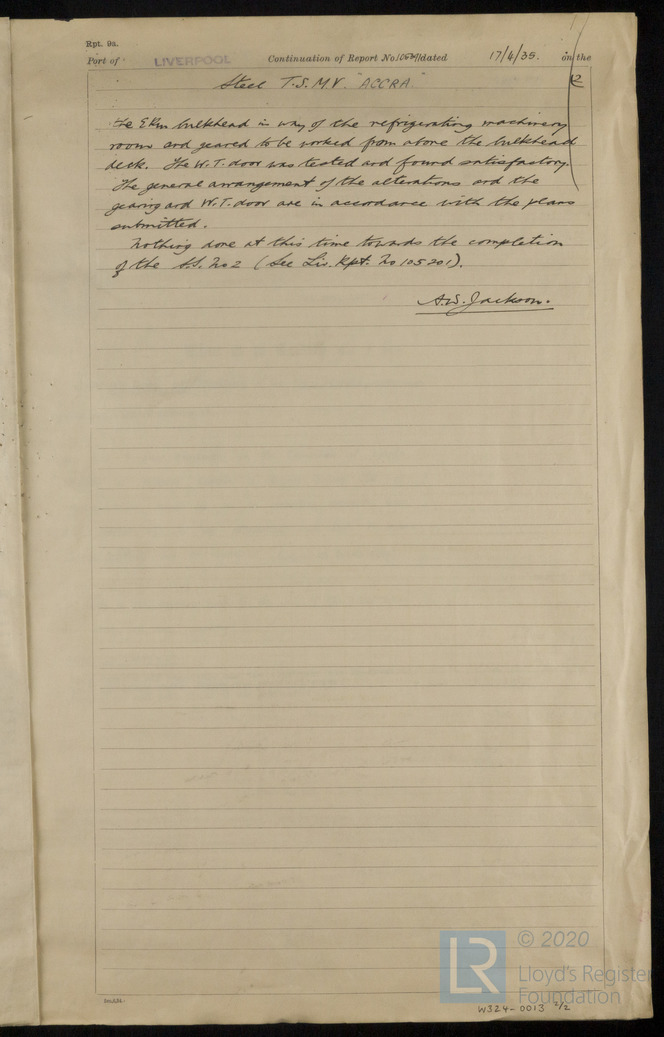 Rpt. 9a.
Port of LIVERPOOL Continuation of Report No. dated 17/4/35. on the
Steel T.S.M.V. "ACCRA"
12
the E Rm bulkhead in way of the refrigerating machinery
room and geared to be worked from above the bulkhead
deck. The W.T. door was tested and found satisfactory.
The general arrangement of the alterations and the
gearing and W.T. door are in accordance with the plans
submitted.
Nothing done at this time towards the completion
of the S.S. No 2 (See Liv. Rpt. No 105201).
A.W. Jackson.
© 2020
LR
Lloyd's Register
Foundation
W324-0013 2/2